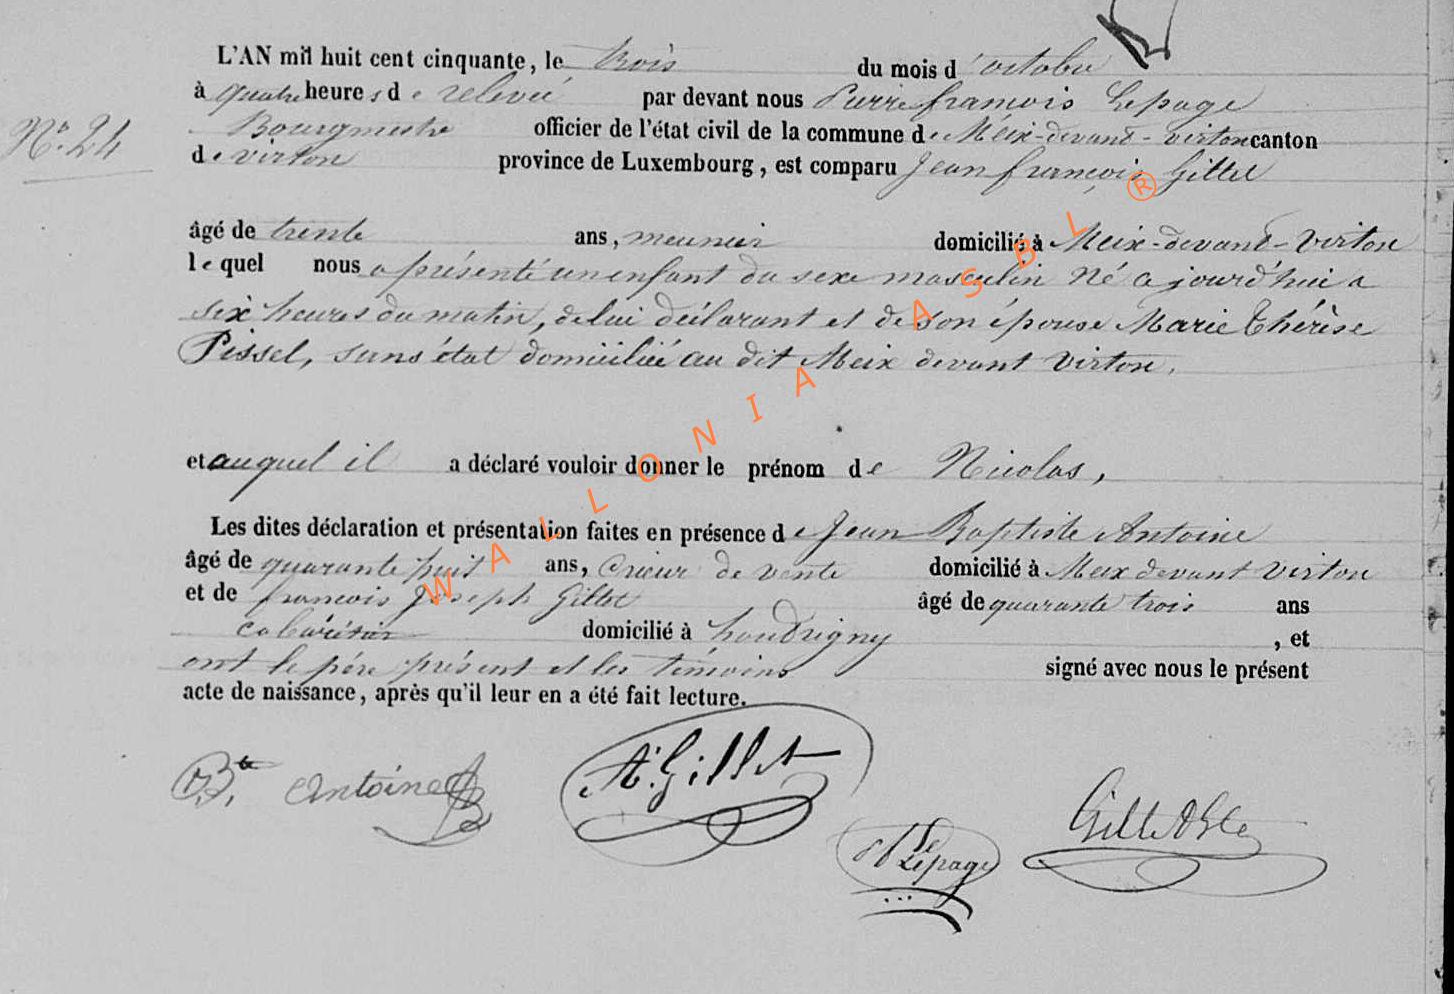 L'AN mil huit cent cinquante, le trois du mois d'octobre
à quatre heures de relevée par devant nous Pierre françois Lepage
N° 24
Bourgmestre officier de l'état civil de la commune de Meix-devant-virton canton
de virton province de Luxembourg, est comparu Jean françois Gillet
âgé de trente ans, meunier domicilié à Meix-devant-Virton
lequel nous a présenté un enfant du sexe masculin né ce jourd'hui a
six heures du matin, de lui déclarant et de son épouse Marie Thérèse
Pissel, sans état domiciliée au dit Meix devant Virton.
et auquel il a déclaré vouloir donner le prénom de Nicolas,
Les dites déclaration et présentation faites en présence de Jean Baptiste Antoine
âgé de quarante huit ans, Crieur de vente domicilié à Meix devant virton
et de françois Joseph Gillet âgé de quarante trois ans
cabaretier domicilié à houdrigny , et
ont le père présent et les témoins signé avec nous le présent
acte de naissance, après qu'il leur en a été fait lecture.
WALLONIA ASBL ®
Bte Antoine
Gillet
Lepage
Gillet